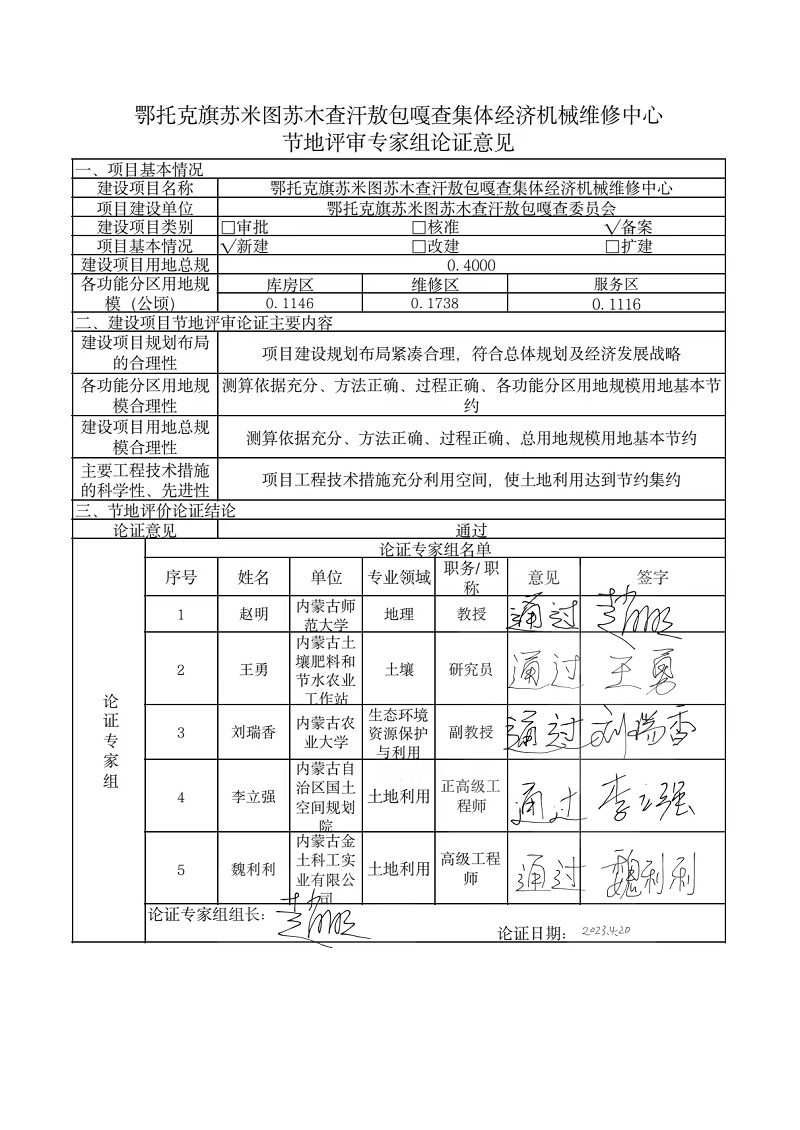 鄂托克旗苏米图苏木查汗敖包嘎查集体经济机械维修中心
节地评审专家组论证意见
一、项目基本情况
建设项目名称 鄂托克旗苏米图苏木查汗敖包嘎查集体经济机械维修中心
项目建设单位 鄂托克旗苏米图苏木查汗敖包嘎查委员会
建设项目类别 □审批 □核准 √备案
项目基本情况 √新建 □改建 □扩建
建设项目用地总规 0.4000
各功能分区用地规 库房区 维修区 服务区
模（公顷） 0.1146 0.1738 0.1116
二、建设项目节地评审论证主要内容
建设项目规划布局
的合理性
项目建设规划布局紧凑合理，符合总体规划及经济发展战略
各功能分区用地规
模合理性
测算依据充分、方法正确、过程正确、各功能分区用地规模用地基本节
约
建设项目用地总规
模合理性
测算依据充分、方法正确、过程正确、总用地规模用地基本节约
主要工程技术措施
的科学性、先进性
项目工程技术措施充分利用空间，使土地利用达到节约集约
三、节地评价论证结论
论证意见 通过
论证专家组
论证专家组名单
序号 姓名 单位 专业领域 职务/职
称
意见 签字
1 赵明 内蒙古师
范大学
地理 教授 通过 赵明
2 王勇 内蒙古土
壤肥料和
节水农业
工作站
土壤 研究员 通过 王勇
3 刘瑞香 内蒙古农
业大学
生态环境
资源保护
与利用
副教授 通过 刘瑞香
4 李立强 内蒙古自
治区国土
空间规划
院
土地利用 正高级工
程师
通过 李立强
5 魏利利 内蒙古金
土科工实
业有限公
司
土地利用 高级工程
师
通过 魏利利
论证专家组组长： 赵明
论证日期： 2023.4.20